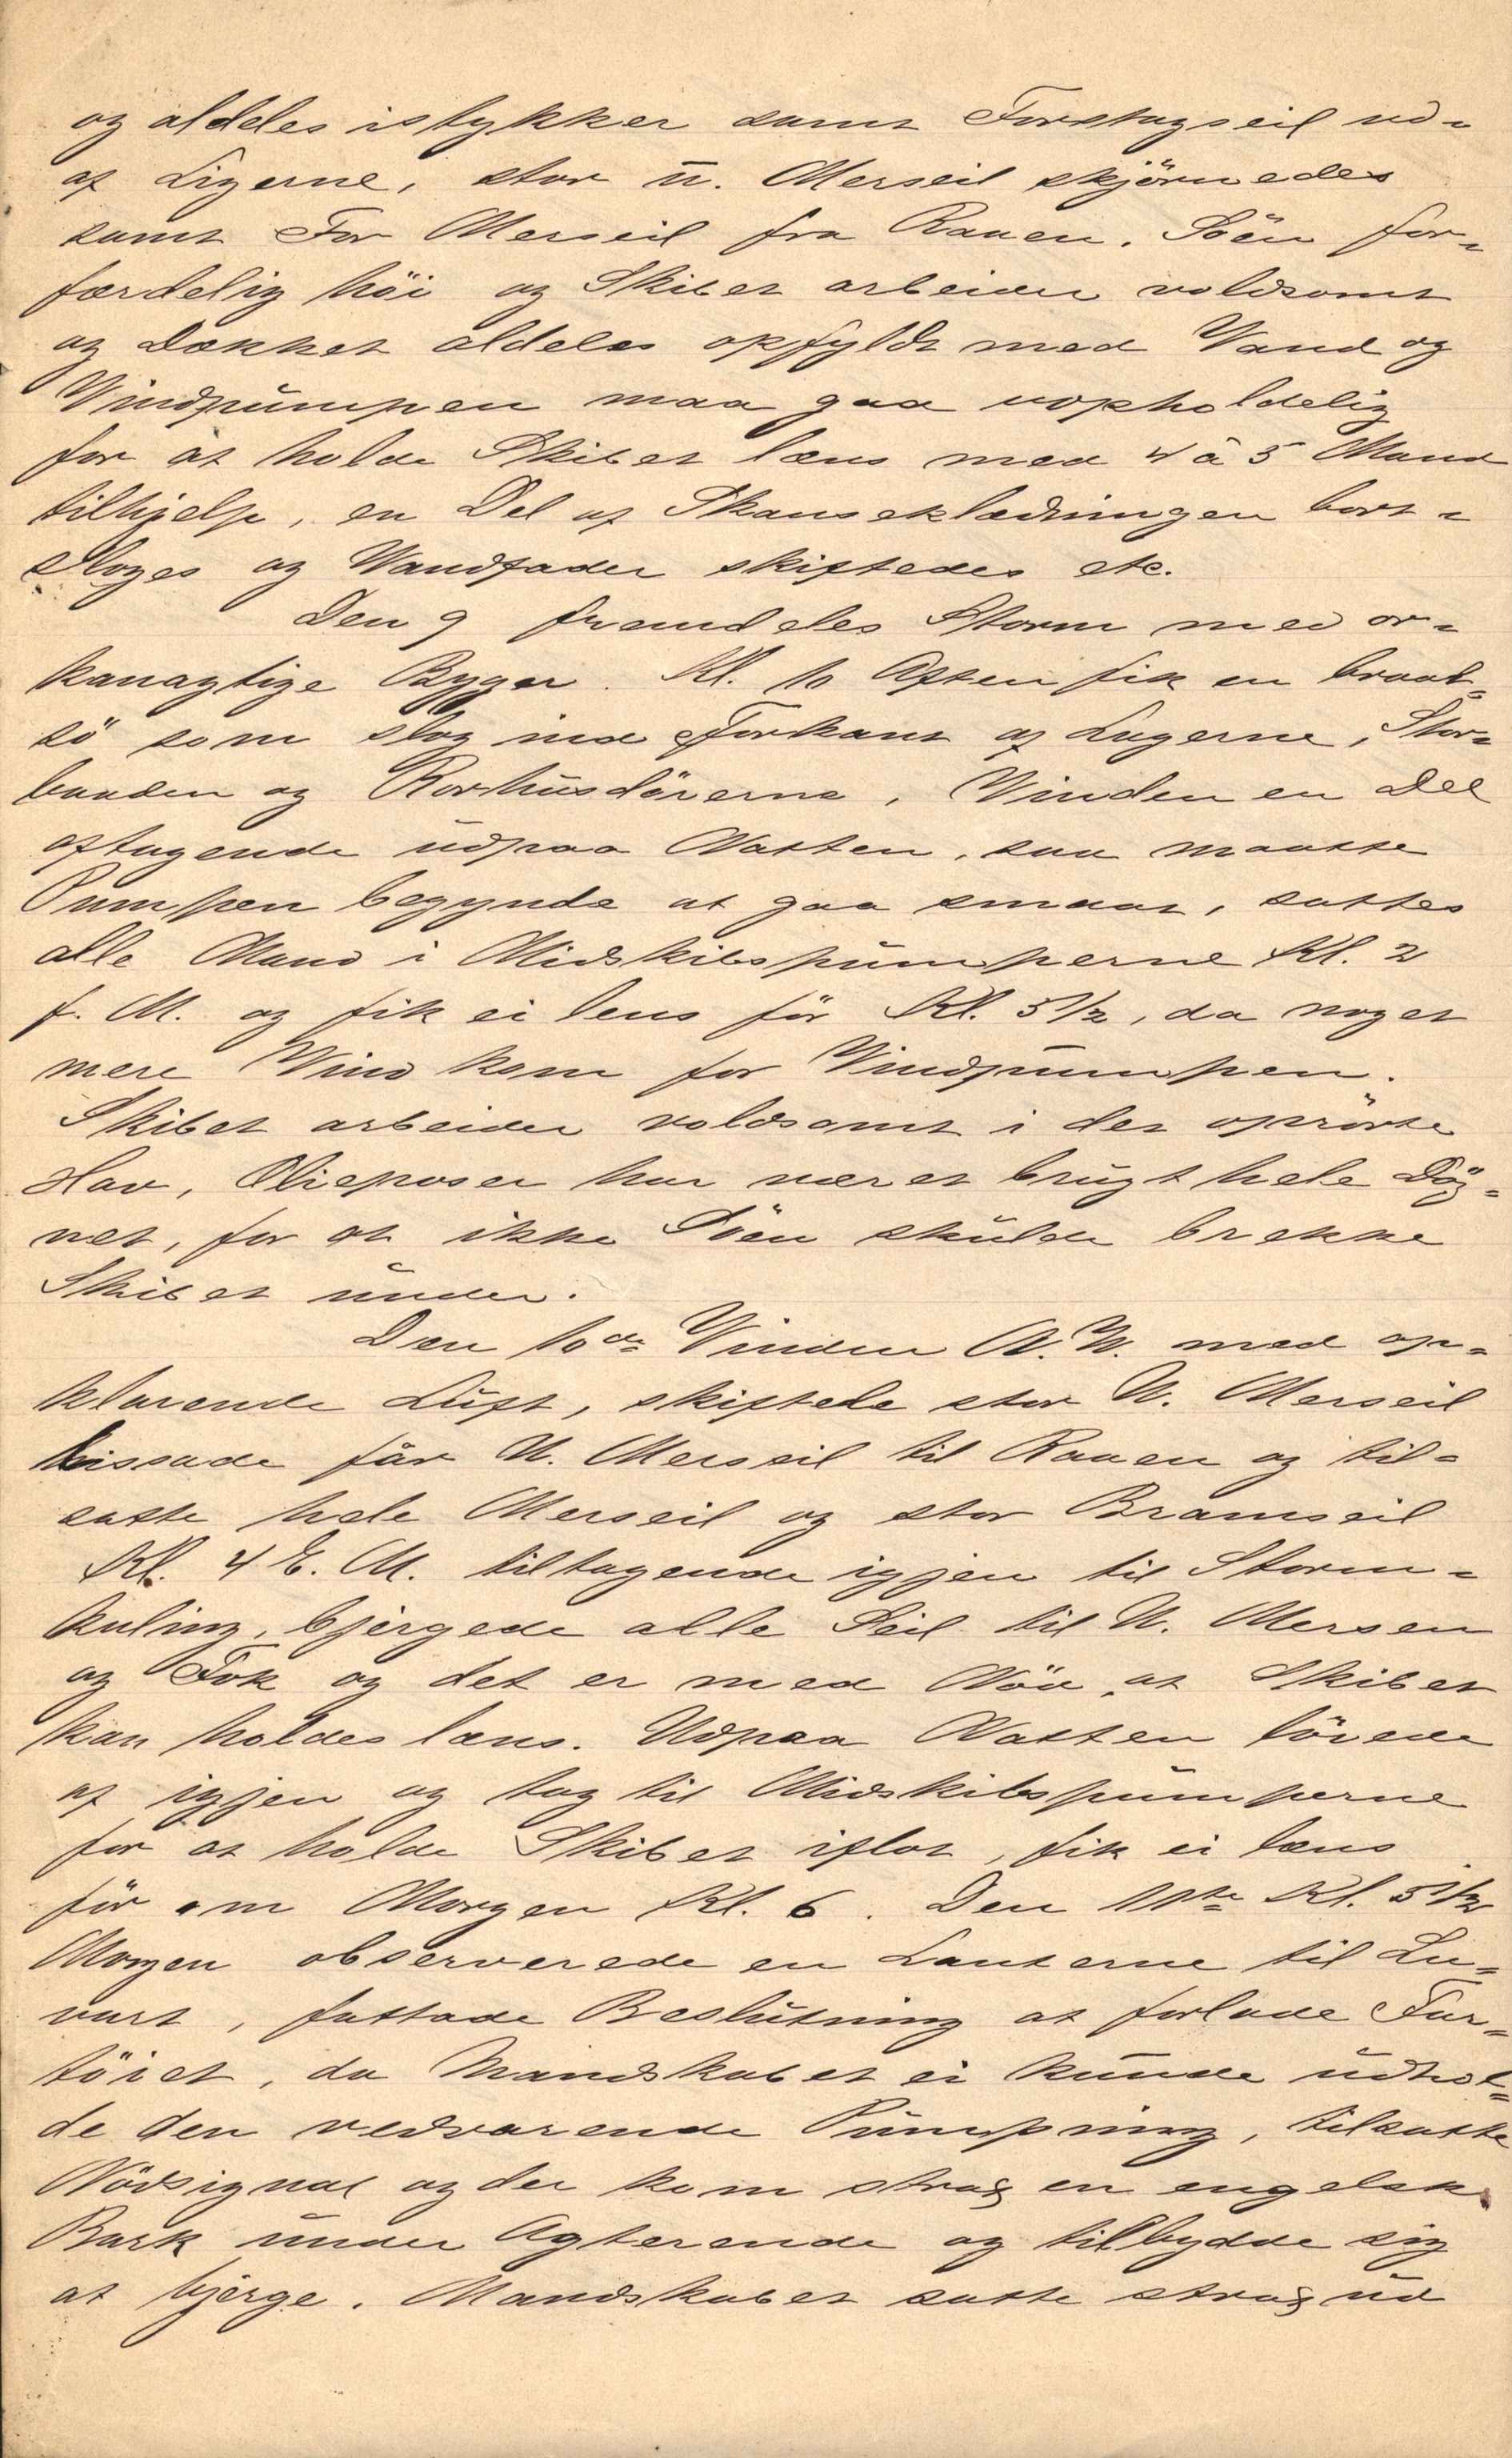 og aldeles istykker samt Forstagseil ud-
af Ligerne, stor U. Merseil skjörnedes
samt For Merseil fra Raaen. Söen for-
færdelig höi og Skibet arbeider voldsomt
og Dækket aldeles opfyldt med Vand og
Vindpumpen maa gaa uopholdelig
for at holde Skibet læns med 4 à 5 Mand
tilhjelp, en Del af Skanseklædningen bort-
sloges og Vandfader skiftedes etc.
Den 9 fremdeles Storm med or-
kanagtige Byger. Kl. 10 Aften fik en braat-
sö som slog ind Forkant af Lugerne, Stor-
baaden og Rorhusdörerne, Vinden en Del
aftagende udpaa Natten, saa maatte
Pumpen begynde at gaa smaat, sattes
alle Mand i Midskibspumperne Kl. 2
f. M. og fik ei lens för Kl. 5 1/2, da noget
mere Vind kom for Vindpumpen.
Skibet arbeider voldsomt i det oprörte
Hav, Olieposer har været brugt hele Dög-
net, for at ikke Söen skulde brekke
Skibet under.
Den 10de Vinden N.W. med op-
klarende Luft, skiftede stor U. Merseil
hissade får U. Merseil til Raaen og til-
satte hele Merseil og stor Bramseil
Kl. 4 E. M. tiltagende igjen til Storm-
kuling, bjergede alle Seil til U. Mersen
og Fok og det er med Nöd, at Skibet
kan holdes læns. Udpaa Natten löiede
af igjen og tog til Midskibspumperne
for at holde Skibet iflot, fik ei læns
för om Morgen Kl. 6. Den 11te Kl. 5 1/2
Morgen observerede en Lanterne til Lu-
vart, fattade Beslutning at forlade Far-
töiet, da Mandskabet ei kunde udhol-
de den vedvarende Pumpning, tilsatte
Nödsignal og der kom strax en engelsk
Bark under Agterende og tilbydde sig
at bjerge. Mandskabet satte strax ud